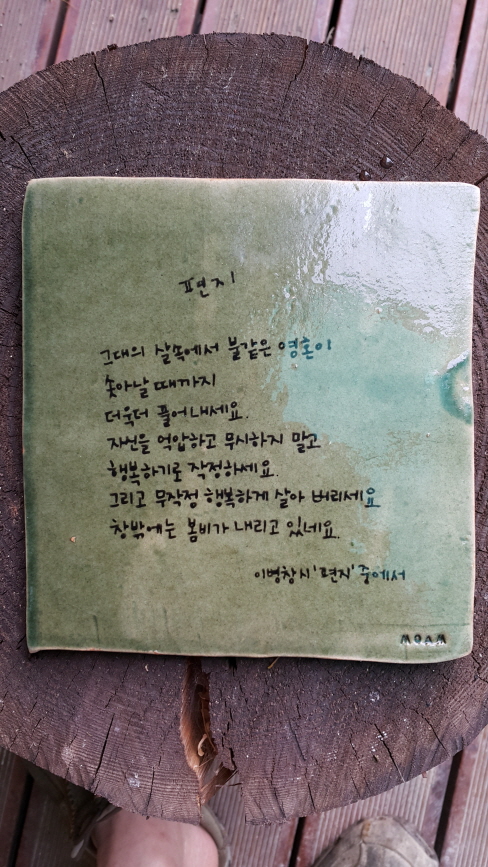 편지
그대의 살속에서 불같은 영혼이
솟아날 때까지
더욱더 풀어내세요.
자신을 억압하고 무시하지 말고
행복하기로 작정하세요.
그리고 무작정 행복하게 살아 버리세요
창밖에는 봄비가 내리고 있네요.
이병창시 '편지' 중에서
MOAM